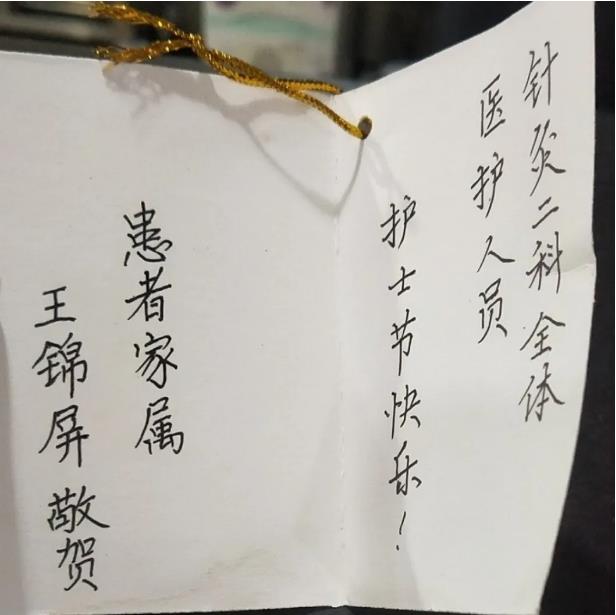 针灸二科全体
医护人员
护士节快乐！
患者家属
王锦屏 敬贺